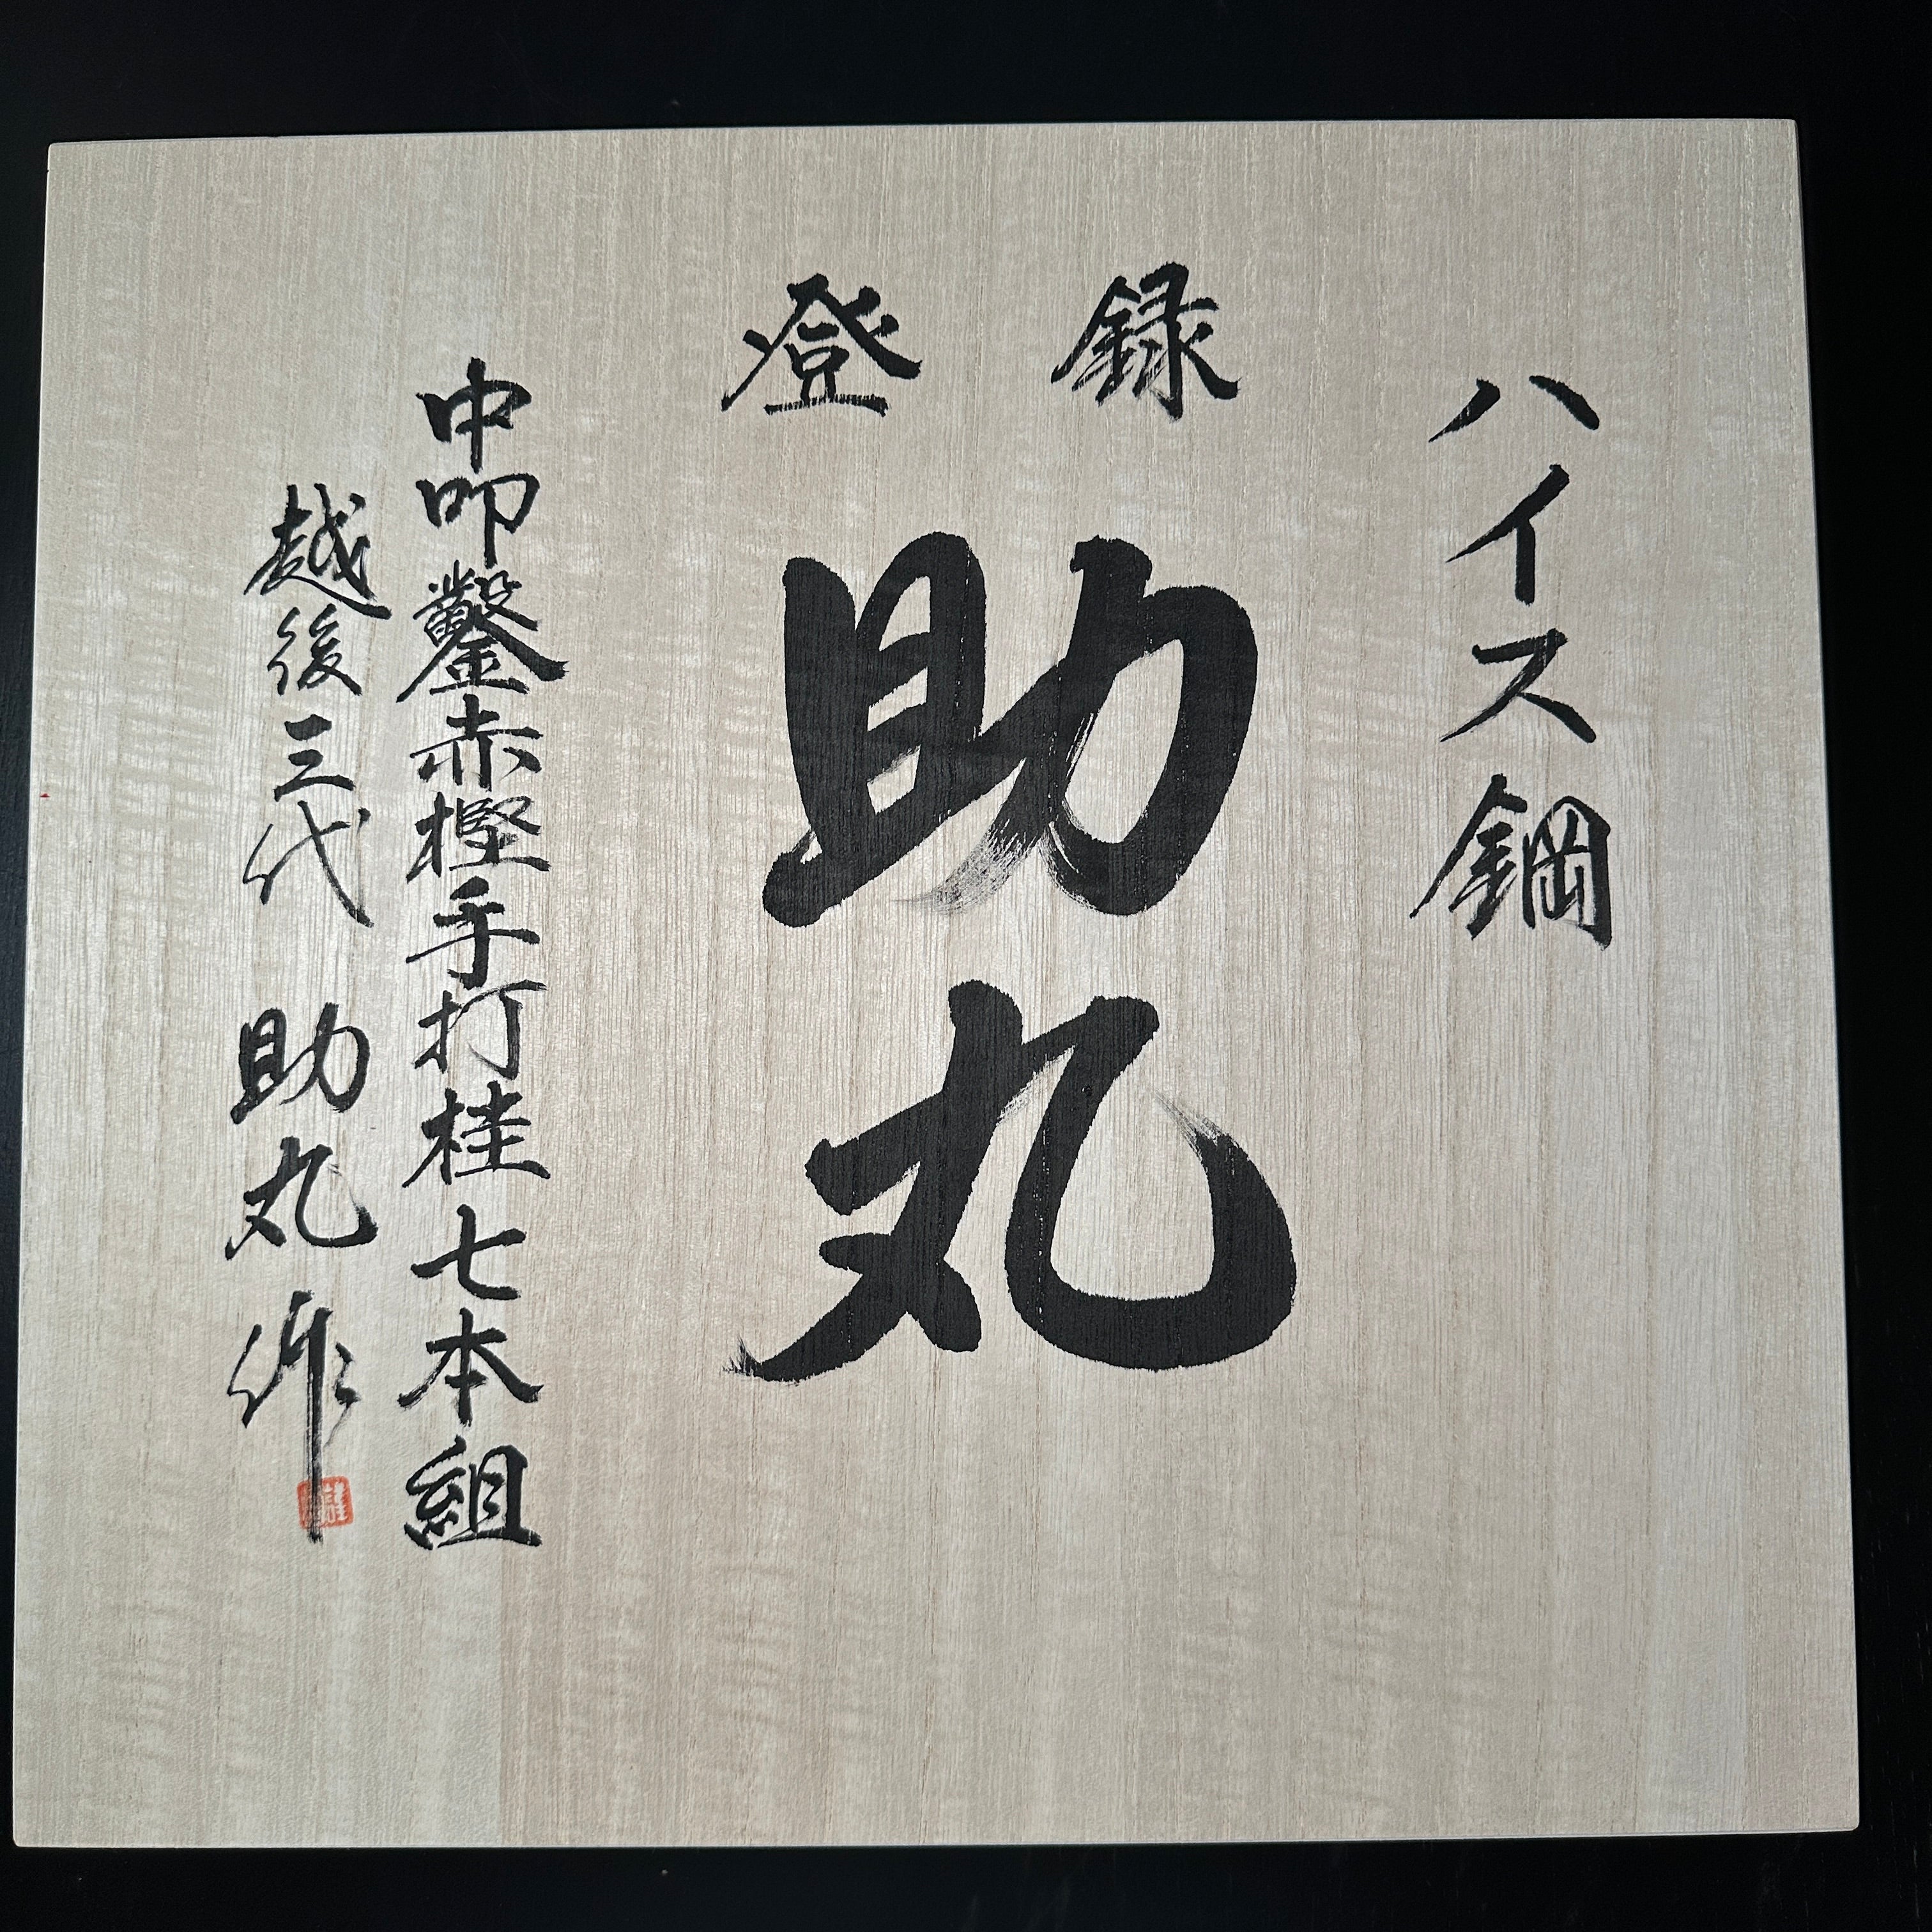 ハイス鋼
登録
助丸
中叩鑿赤樫手打桂七本組
越後三代 助丸作